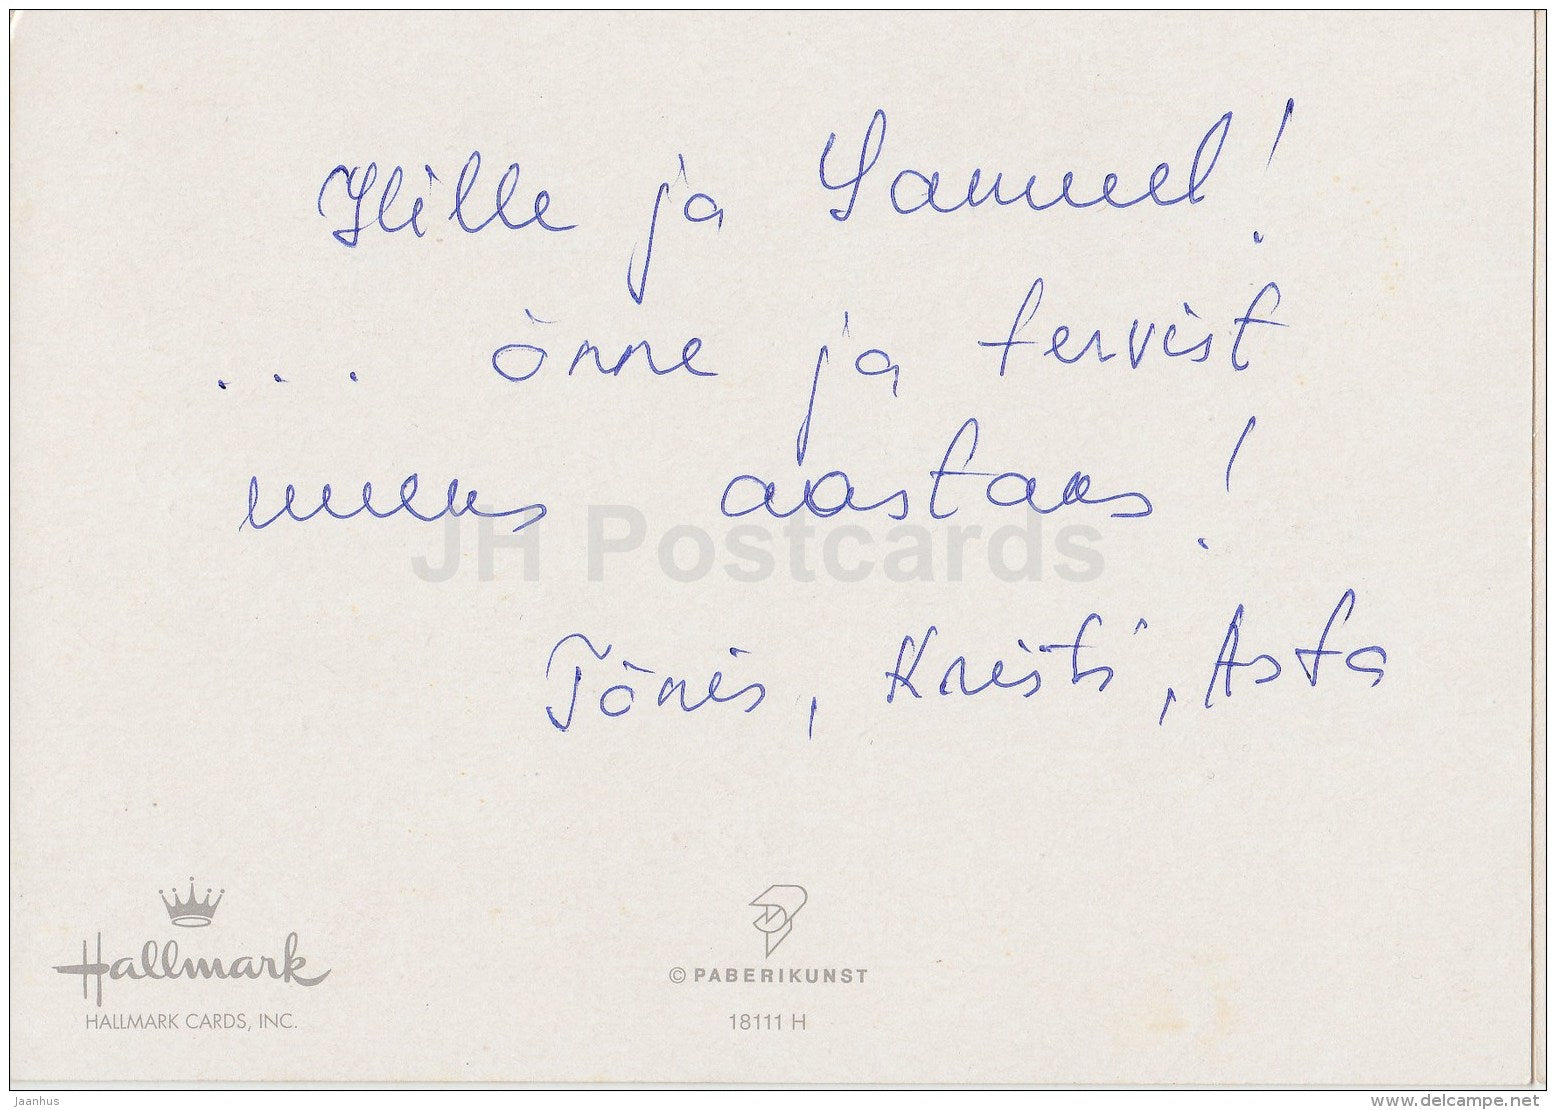 Hille ja Samuel!
... õnne ja tervist
uueks aastaks!
Tõnis, Kristi, Asta
JH Postcards
Hallmark
HALLMARK CARDS, INC.
© PABERIKUNST
18111 H
Jaanhus
www.delcampe.net